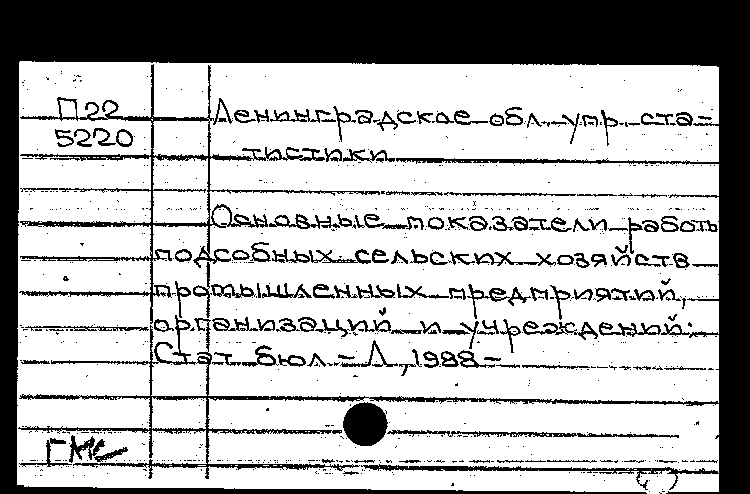 П22
5220
Ленинградское обл. упр. ста-
тистики
Основные показатели работы
подсобных сельских хозяйств
промышленных предприятий,
организаций и учреждений:
Стат. бюл. - Л., 1988 -